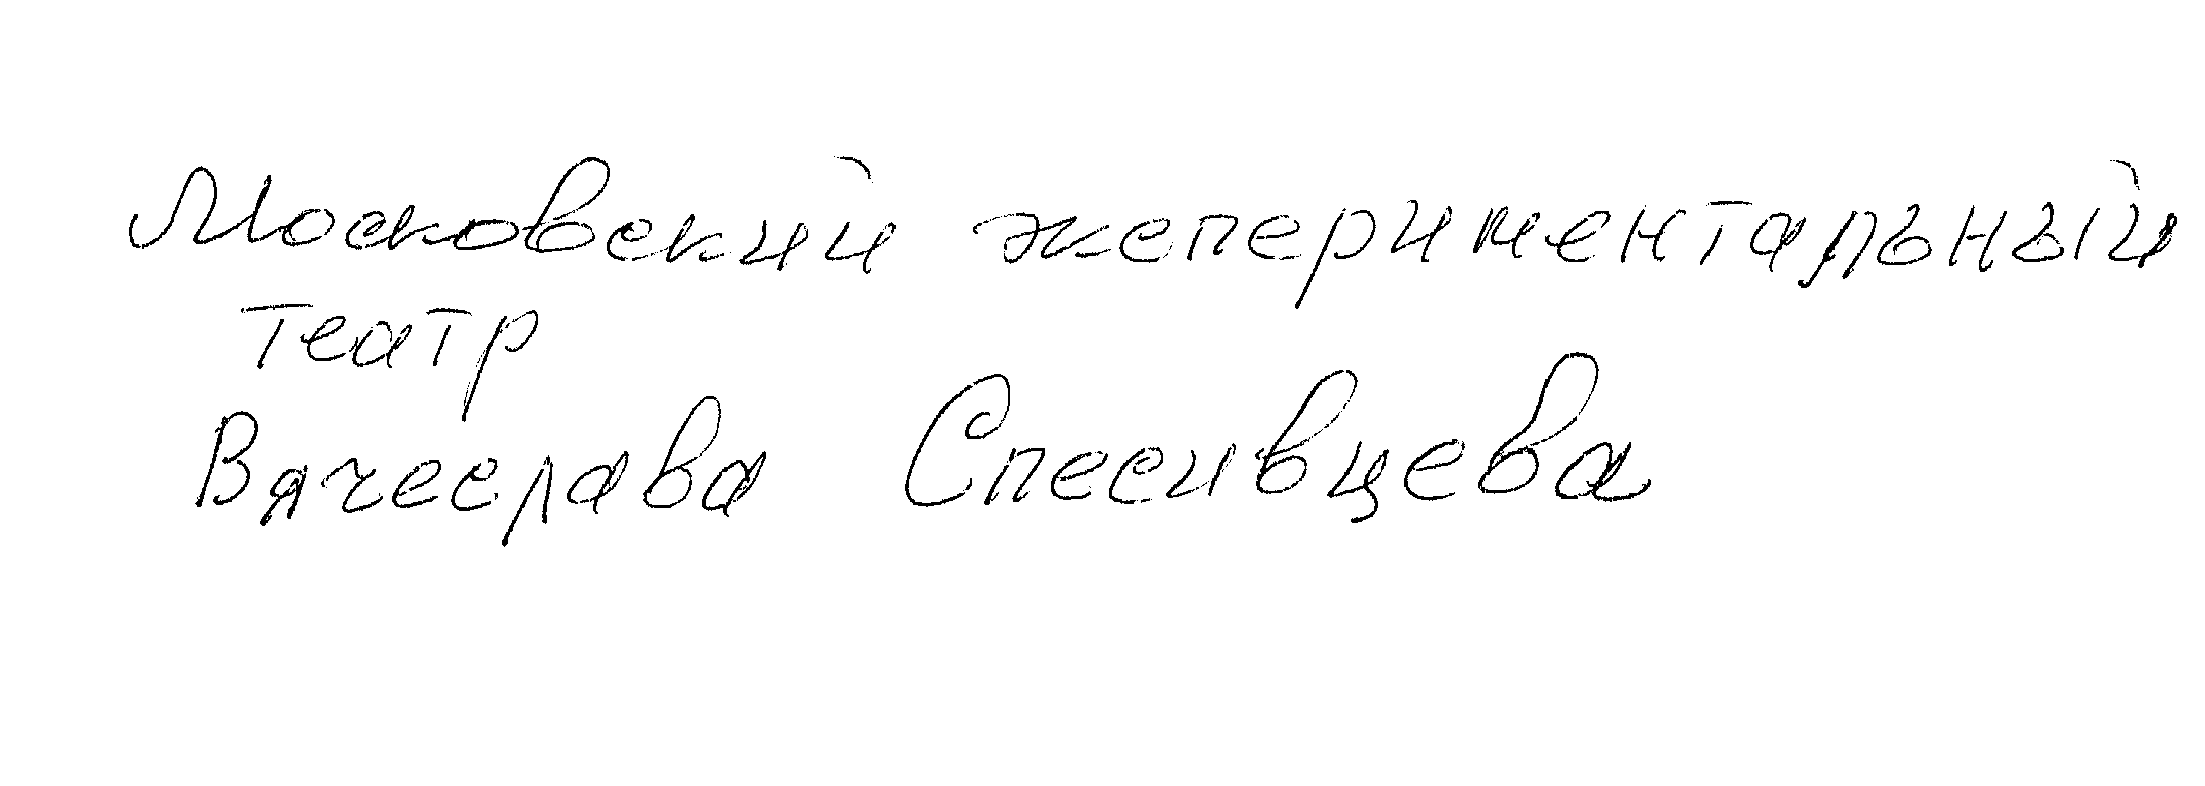 Московский экспериментальный
театр
Вячеслава Спесивцева